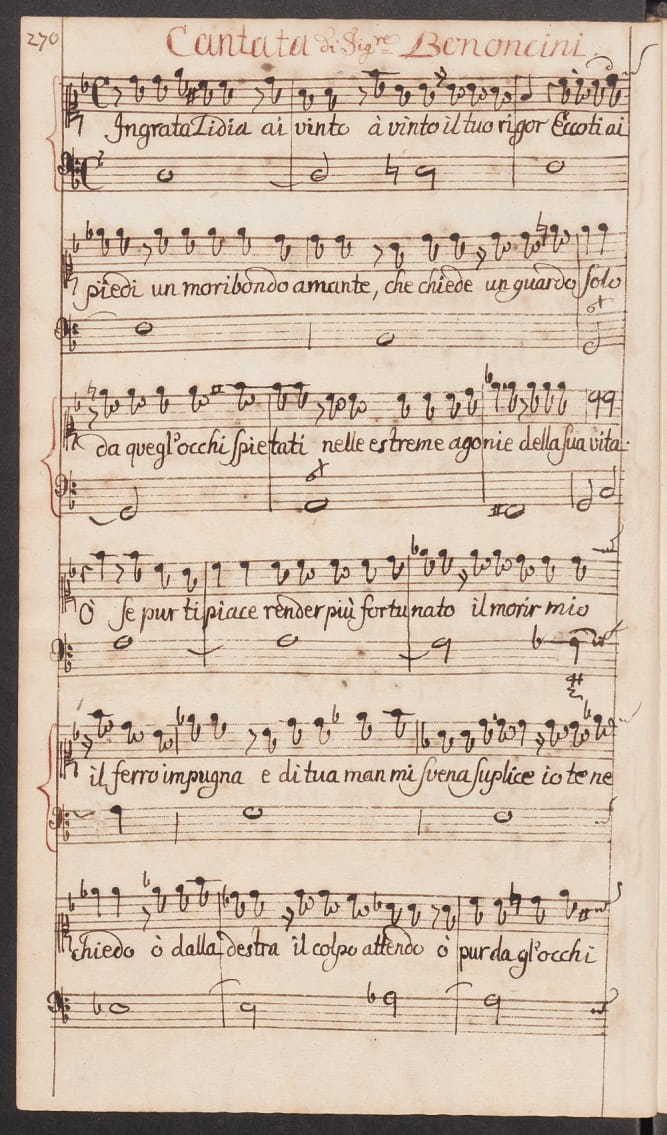 270
Cantata di Sig.re Bononcini
Ingrata Lidia ai vinto à vinto il tuo rigor Eccoti ai
piedi un moribondo amante, che chiede un guardo solo
da quegl'occhi spietati nelle estreme agonie della sua vita.
ò se pur ti piace render più fortunato il morir mio
il ferro impugna e di tua man mi svena suplice io te ne
chiedo ò dalla destra il colpo attendo ò pur da gl'occhi